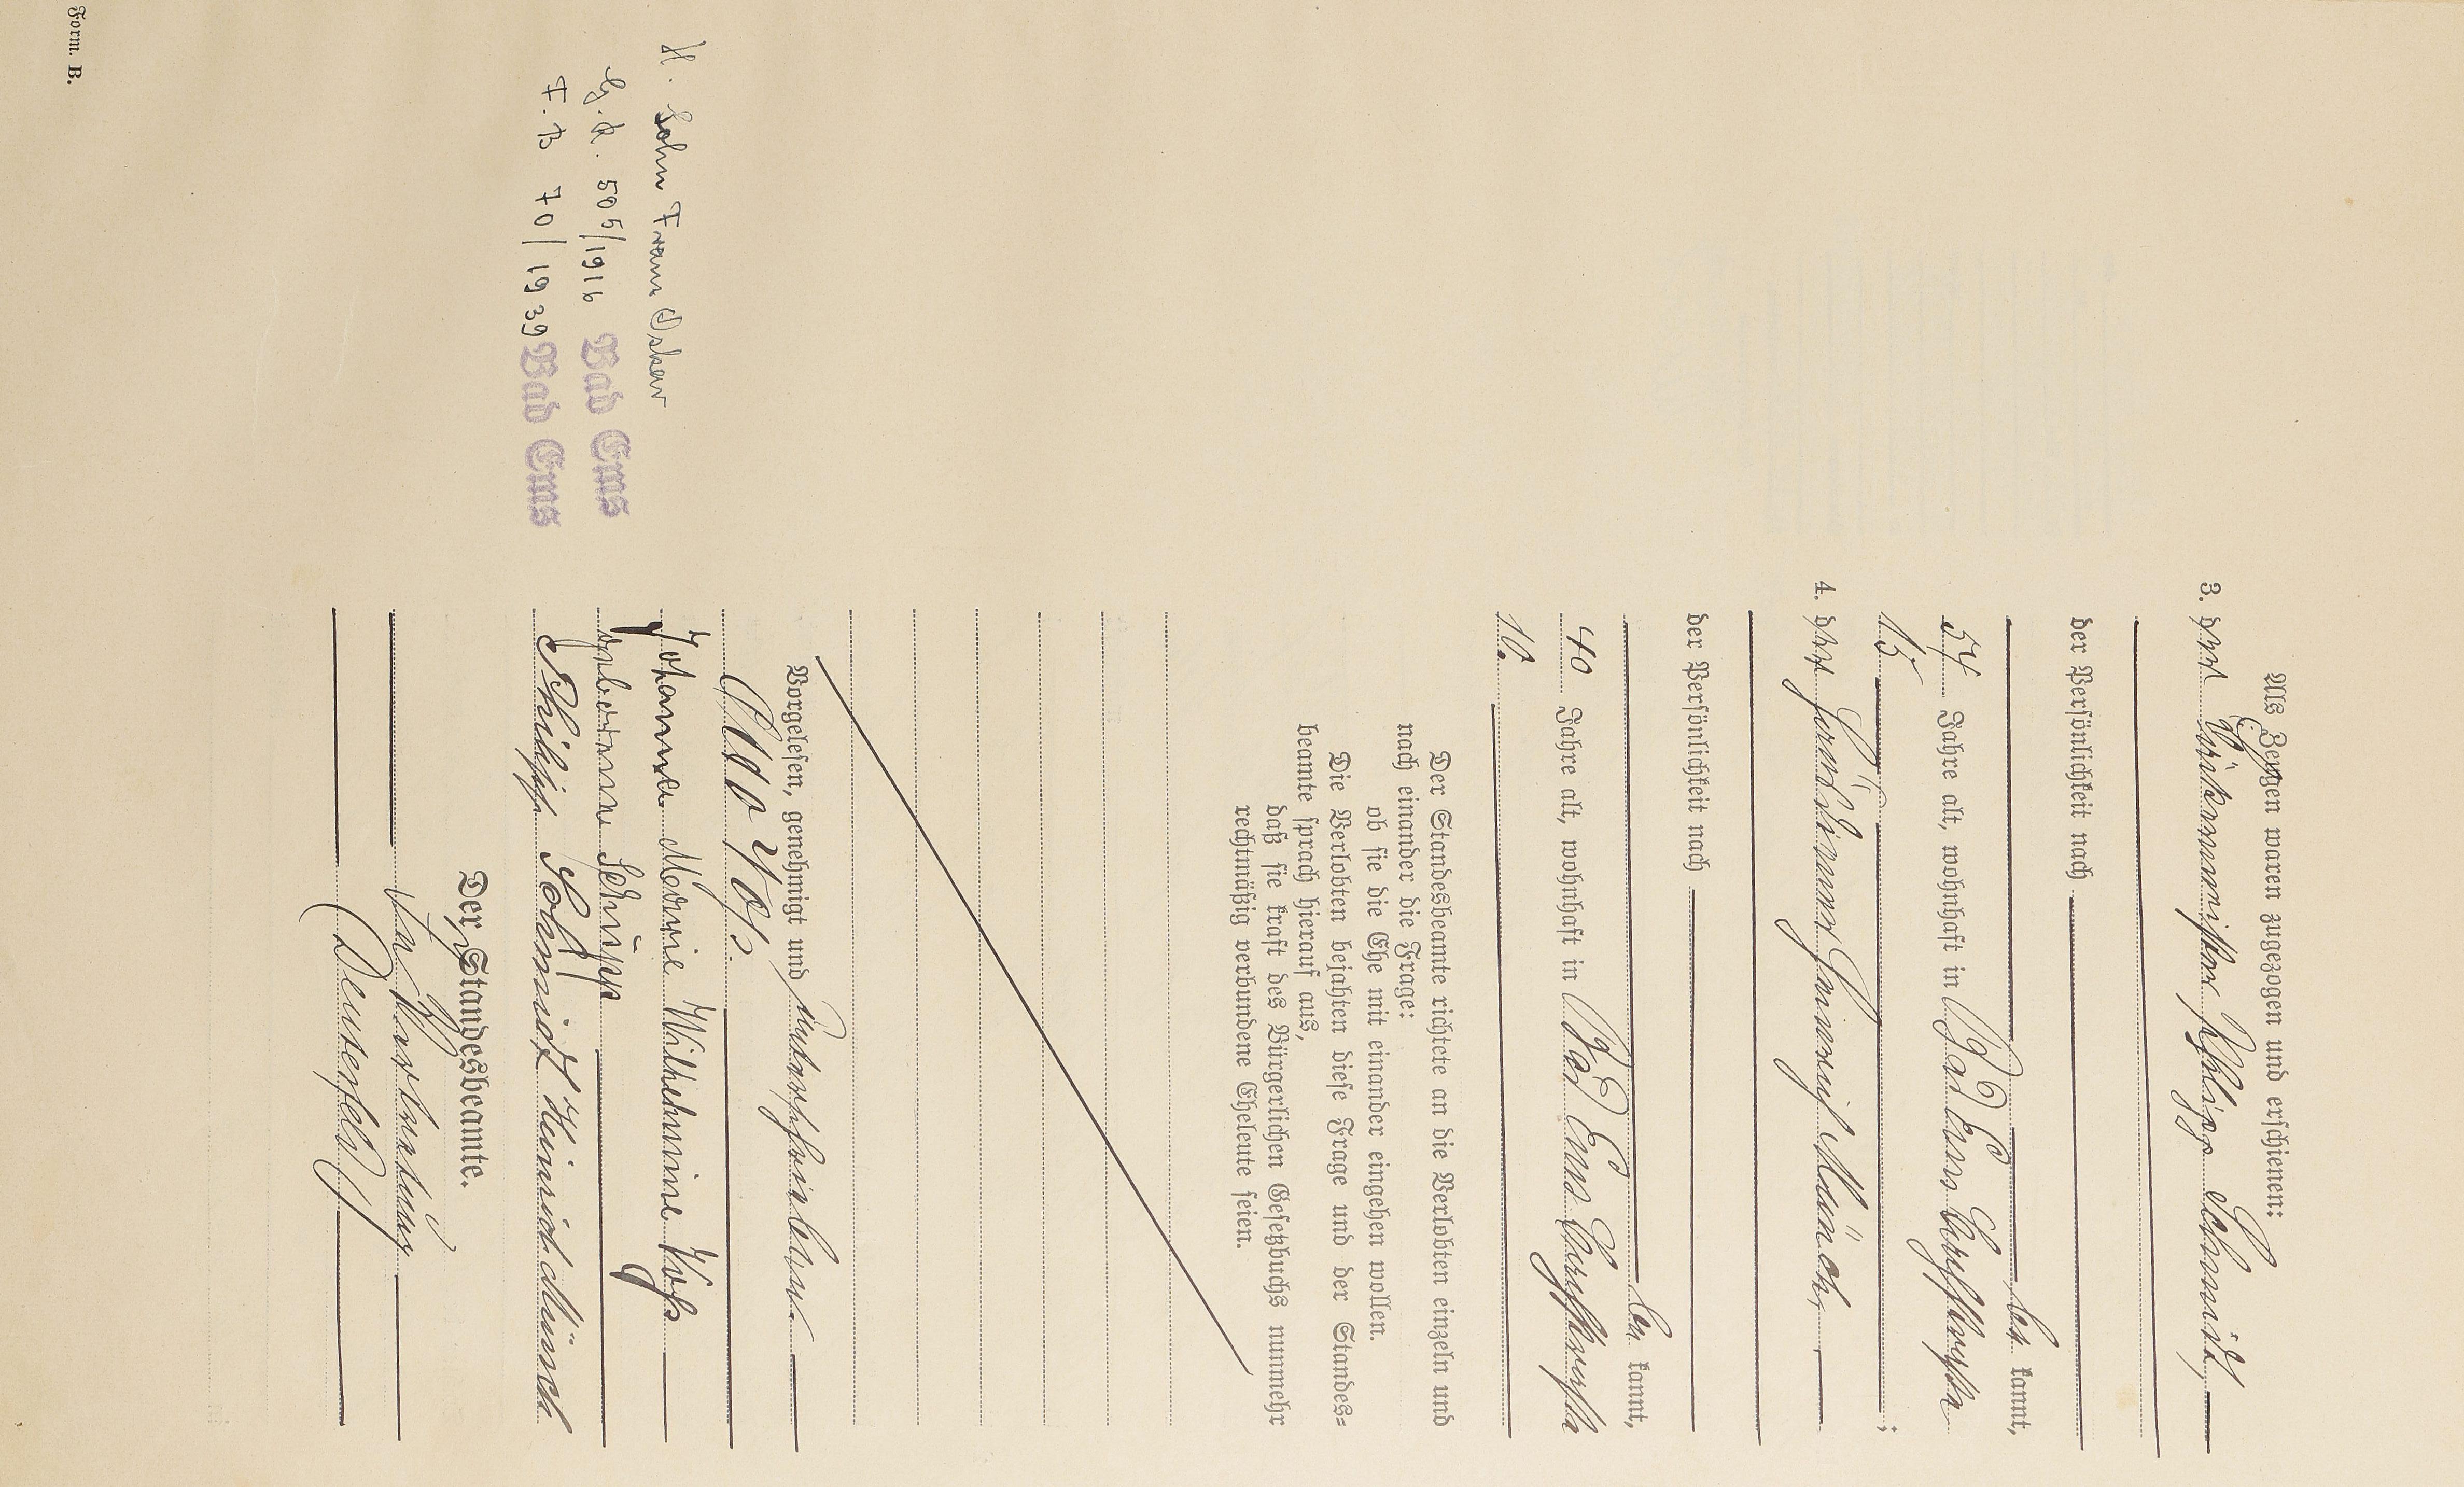 Als Zeugen waren zugezogen und erschienen:
3. der Bäckermeister Philipp Schmidt,
der Persönlichkeit nach
be kannt,
54 Jahre alt, wohnhaft in Bad Ems
15 ;
4. der Heinrich Münch,
der Persönlichkeit nach
be kannt,
40 Jahre alt, wohnhaft in Bad Ems
10.
Der Standesbeamte richtete an die Verlobten einzeln und
nach einander die Frage:
ob sie die Ehe mit einander eingehen wollen.
Die Verlobten bejahten diese Frage und der Standes-
beamte sprach hierauf aus,
daß sie kraft des Bürgerlichen Gesetzbuchs nunmehr
rechtmäßig verbundene Eheleute seien.
Vorgelesen, genehmigt und unterschrieben.
Otto Voß.
Johanna Marie Wilhelmine Voß
geborene Schupp
Philipp Schmidt Heinrich Münch
Der Standesbeamte.
In Vertretung
1. Sohn Franz Oskar
G. R. 505/1916 Bad Ems
F. B 70/1939 Bad Ems
Form. B.